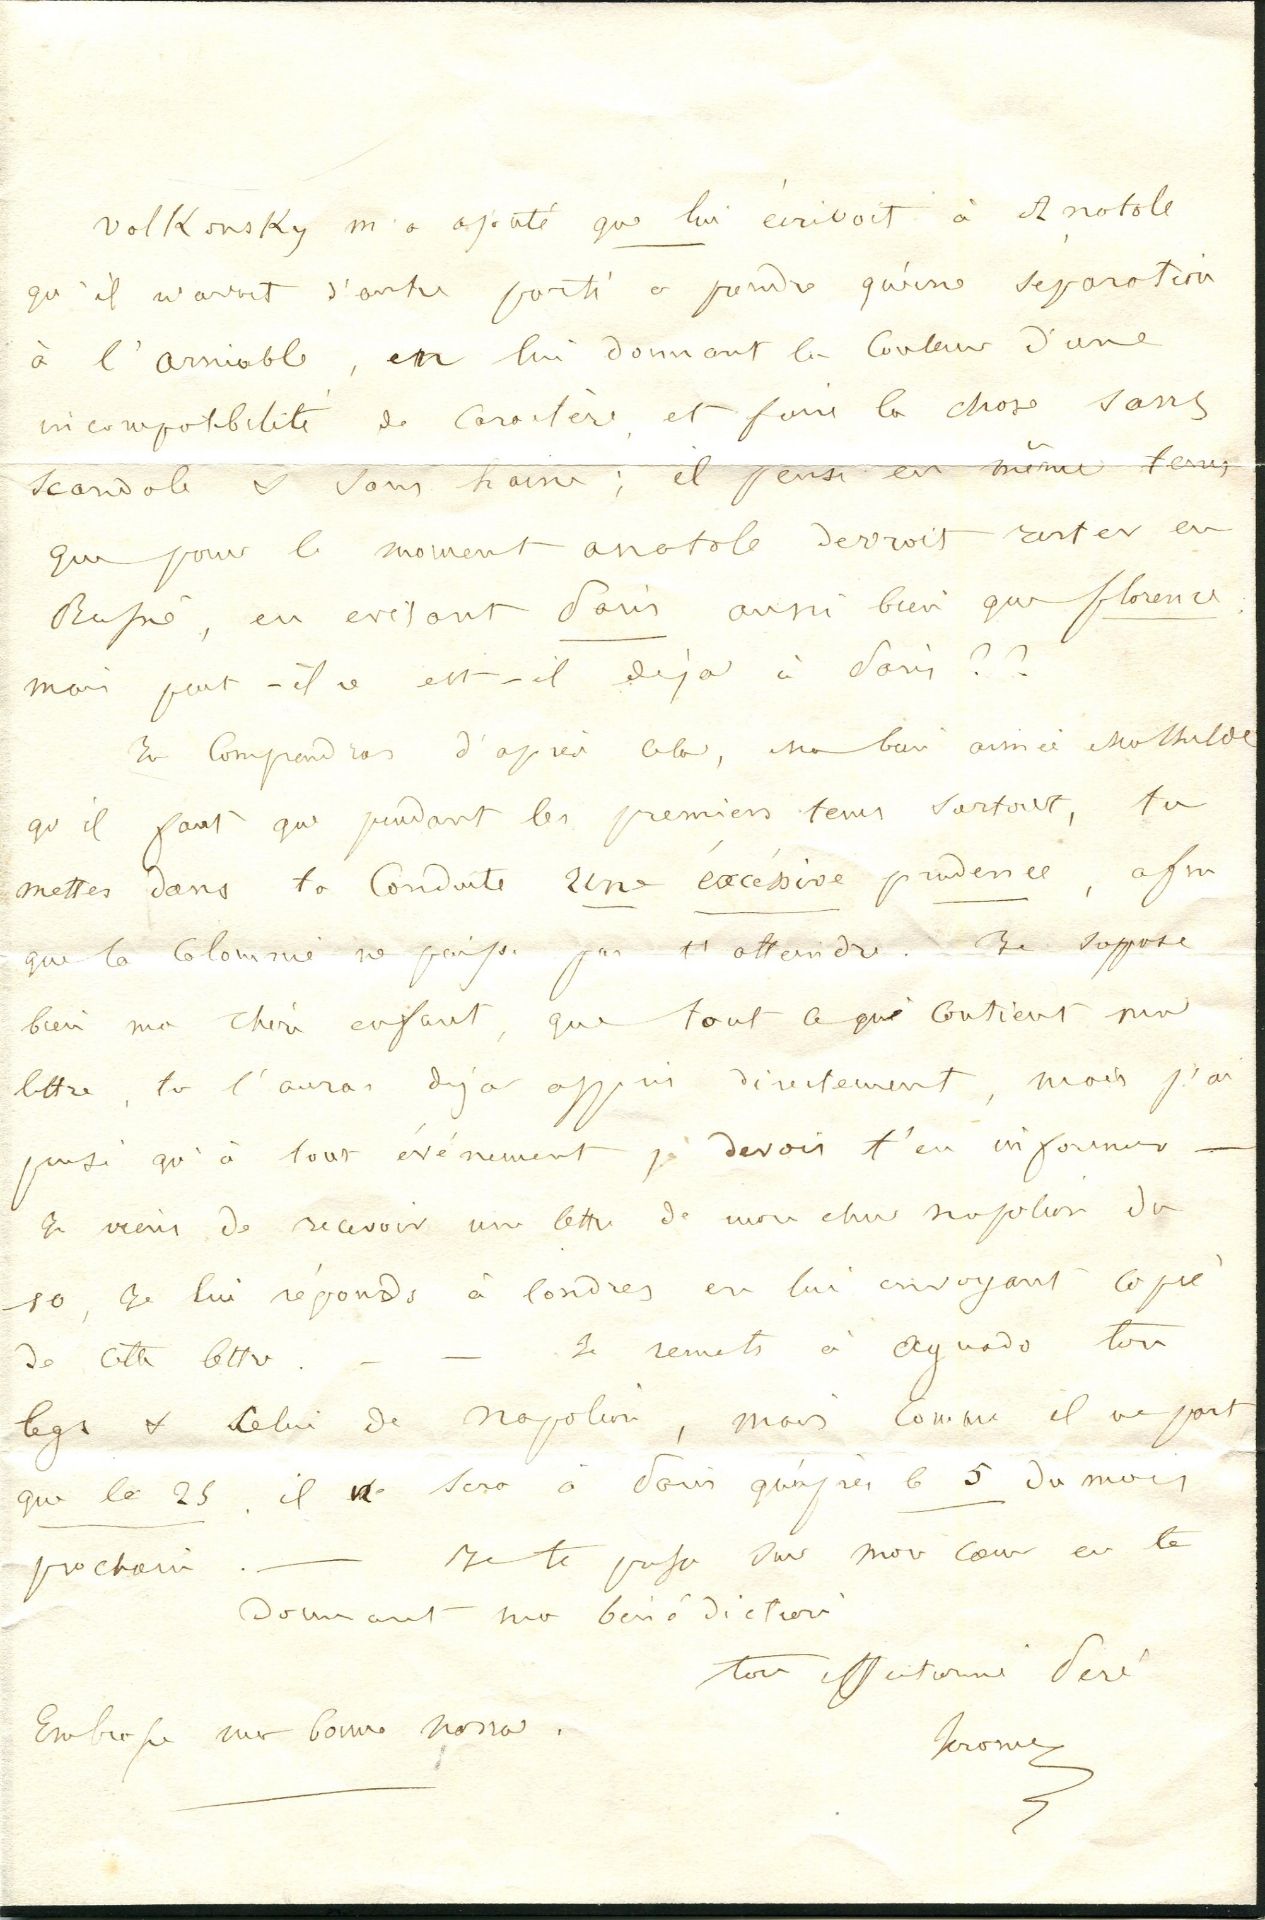 Volkonsky m'a ajouté que lui écrivoit à Anatole
qu'il n'avoit d'autre parti a prendre qu'une séparation
à l'amiable, en lui donnant la couleur d'une
incompatibilité de caractère, et faire la chose sans
scandale & sans haine; il pense en même tems
que pour le moment anatole devroit rester en
Russie, en evitant Paris aussi bien que florence.
mais peut-il e est-il déja à Paris ??
Tu comprendras d'après cela, ma bien aimée Mathilde
qu'il faut que pendant les premiers tems surtout, tu
mettes dans ta conduite une excéssive prudence, afin
que la calomnie ne puisse pas t'atteindre. Je suppose
bien ma chère enfant, que tout ce qui contient ma
lettre, tu l'auras déja appris directement, mais j'ai
pensé qu'à tout événement je devois t'en informer —
Je viens de recevoir une lettre de mon cher napoléon du
10, Je lui réponds à londres en lui envoyant copie
de cette lettre. — — Je remets à Aguado ton
legs & celui de napoléon, mais comme il ne part
que le 25, il ne sera à Paris qu'après le 5 du mois
prochain. — Je te presse sur mon cœur en te
donnant ma bénédiction
ton affectionné Peré
Embrasse ma bonne
Jerome